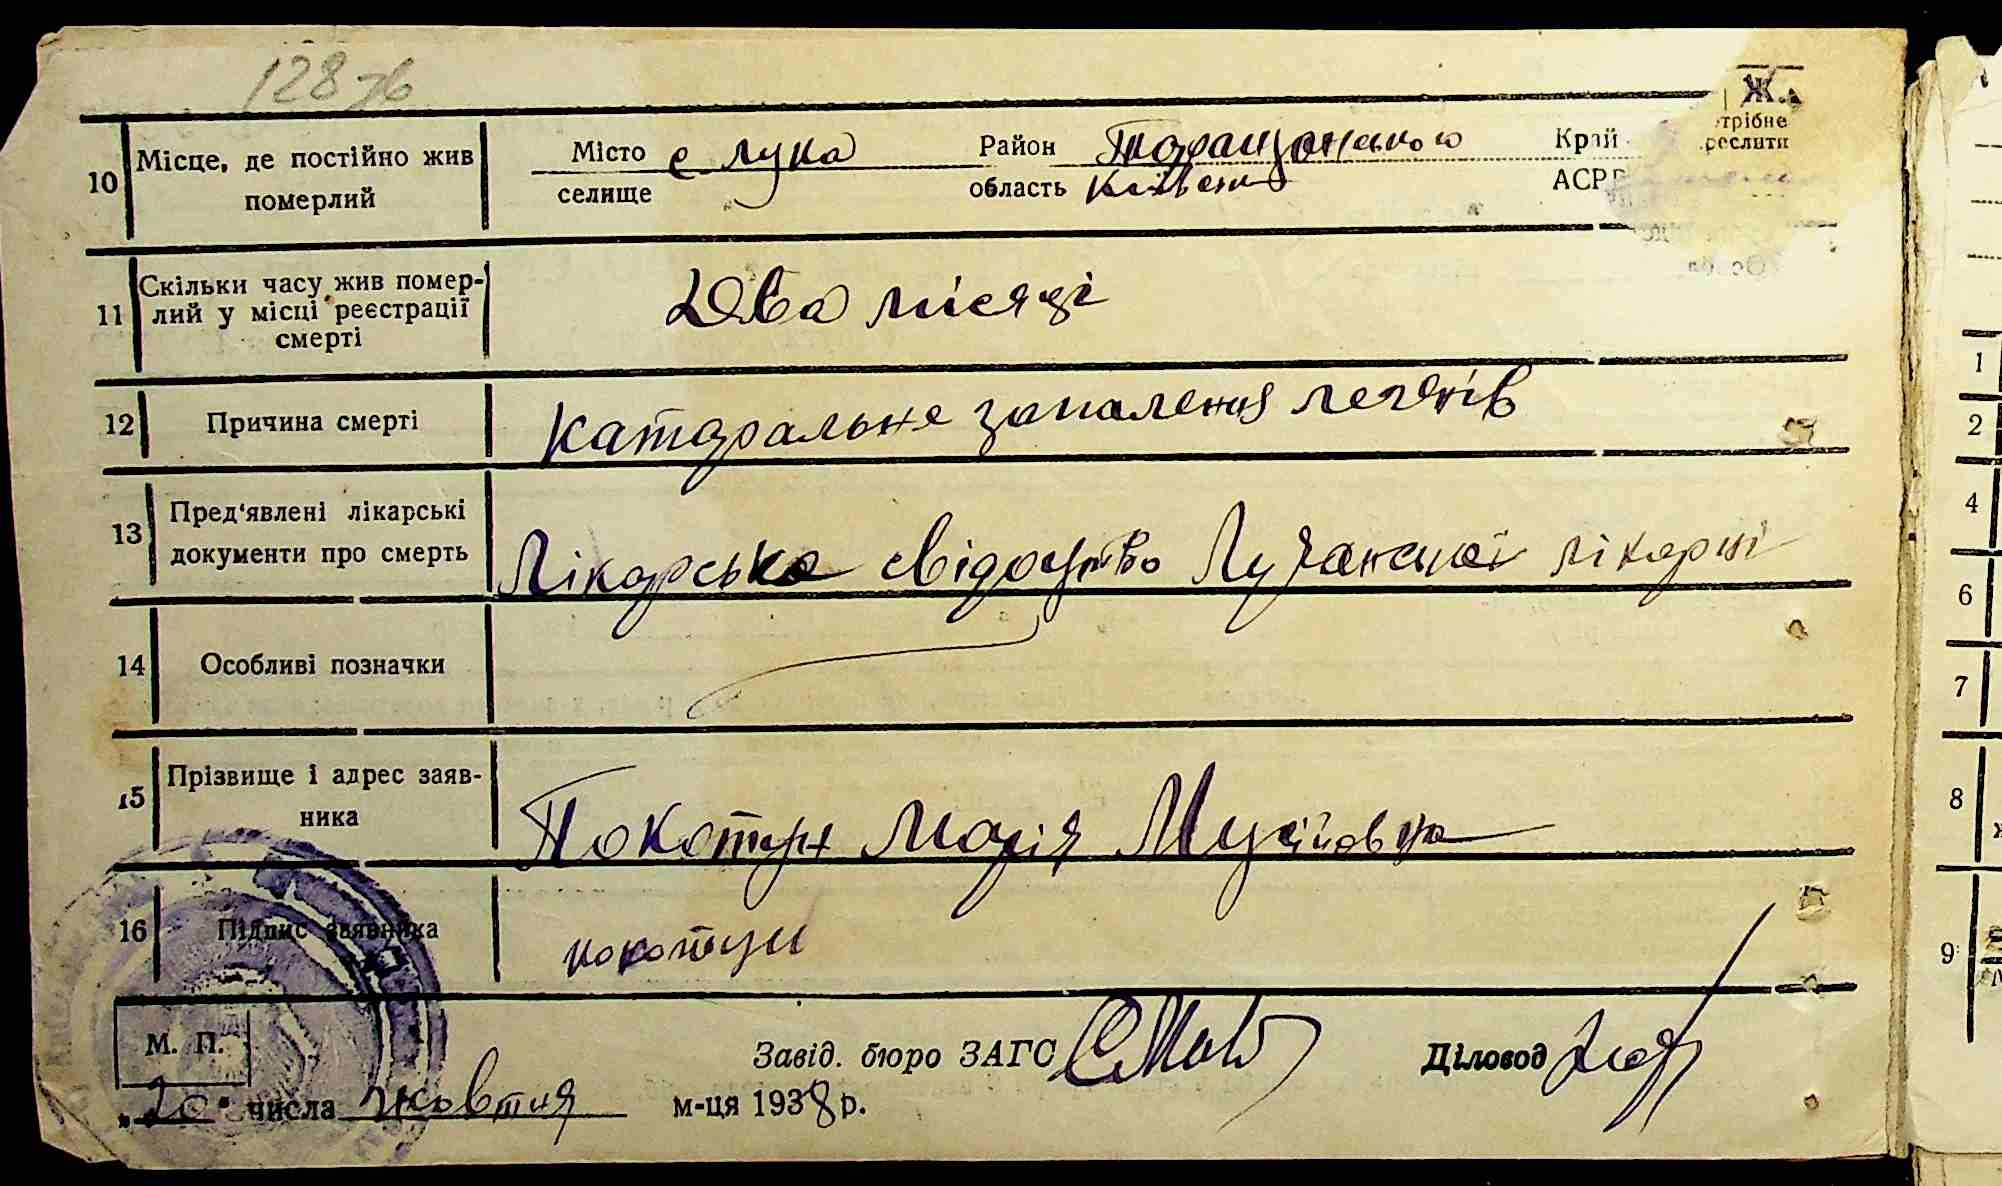 128 зв
Ж.
трібне
реслити
10 Місце, де постійно жив померлий
Місто с Лука Район Таращанського Край
селище область Київськ АСРР
11 Скільки часу жив помер-
лий у місці реєстрації
смерті
Два місяці
12 Причина смерті Катаральне запалення легенів
13 Пред'явлені лікарські
документи про смерть
Лікарська свідоцтво Лучанської лікарні
14 Особливі позначки
15 Прізвище і адрес заяв-
ника
Покотун Марія Мусійовна
16 Підпис заявника покотун
М. П.
Завід. бюро ЗАГС Діловод
„20" числа жовтня м-ця 1938 р.
1
2
4
6
7
8
9